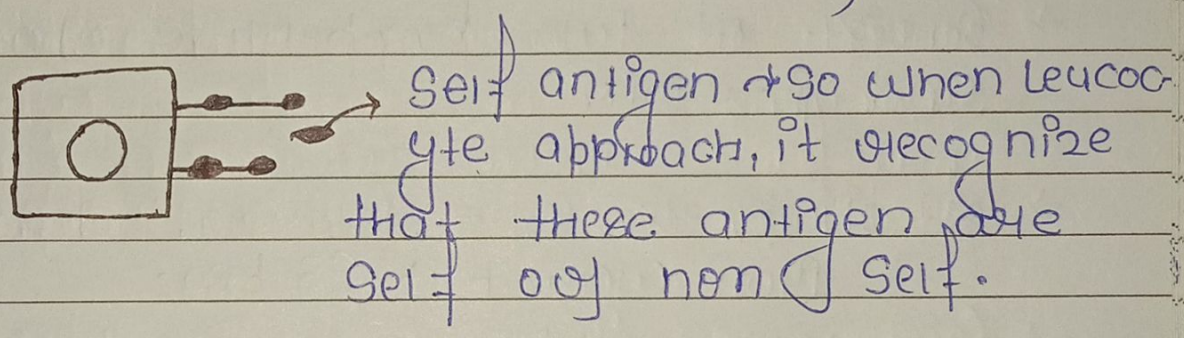 Self antigen → so when Leucoc-
yte approach, it recognize
that these antigen are
self or non self.